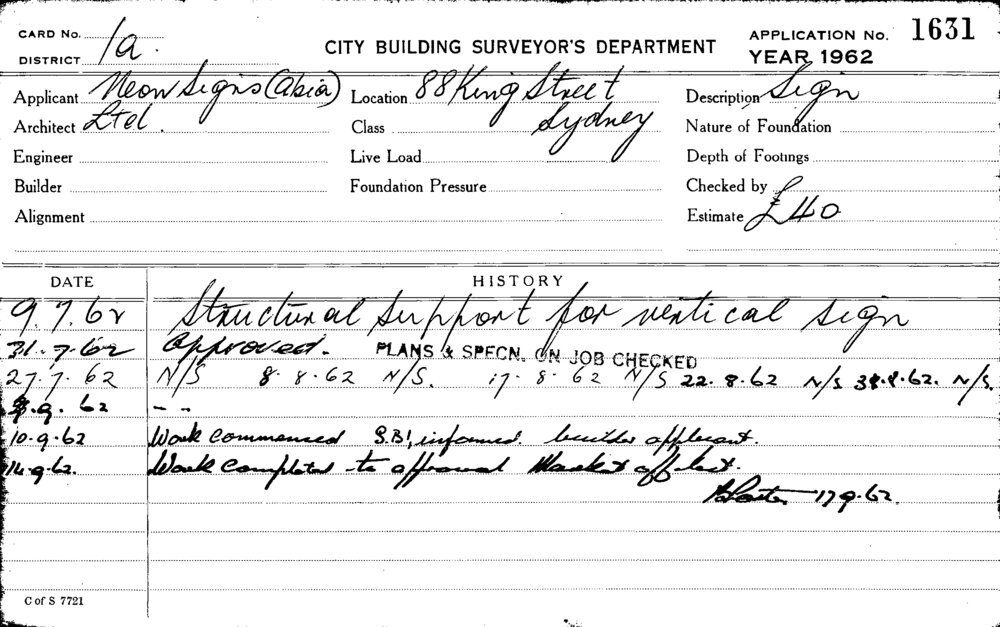 CARD No. 1a.
DISTRICT
CITY BUILDING SURVEYOR'S DEPARTMENT
APPLICATION No. 1631
YEAR 1962
Applicant Neon Signs (Asia)
Location 88 King Street
Description Sign
Architect Ltd.
Class Sydney
Nature of Foundation
Engineer
Live Load
Depth of Footings
Builder
Foundation Pressure
Checked by
Alignment
Estimate £40
DATE
HISTORY
9.7.62 Structural support for vertical sign
31.7.62 Approved. PLANS & SPECN. ON JOB CHECKED
27.7.62 N/S 8.8.62 N/S. 17.8.62 N/S 22.8.62 N/S 31.8.62. N/S.
.9.62 - -
10.9.62 Work commenced S.B.I. informed. builder applicant.
14.9.62. Work completed to approval
17.9.62.
C of S 7721